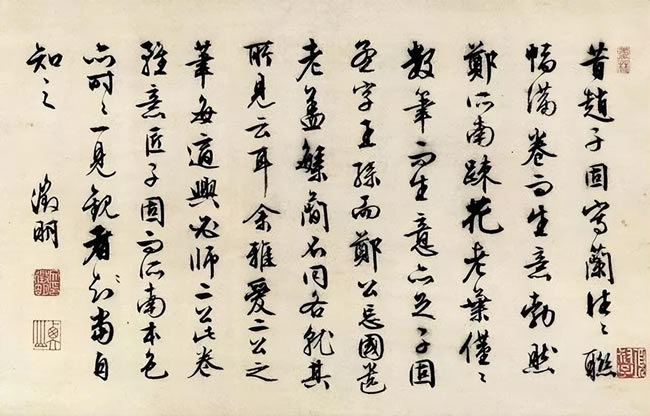 昔趙子固寫蘭往々聯
幅滿卷而生意勃然
鄭所南疎花老葉僅々
數筆而生意亦足子固
孟字王孫而鄭公忘國遺
老蓋繁簡不同各就其
所見云耳余雅愛二公之
筆每適興必師二公此卷
雖意匠子固而所南本色
亦時々一見觀者當自
知之
徵明